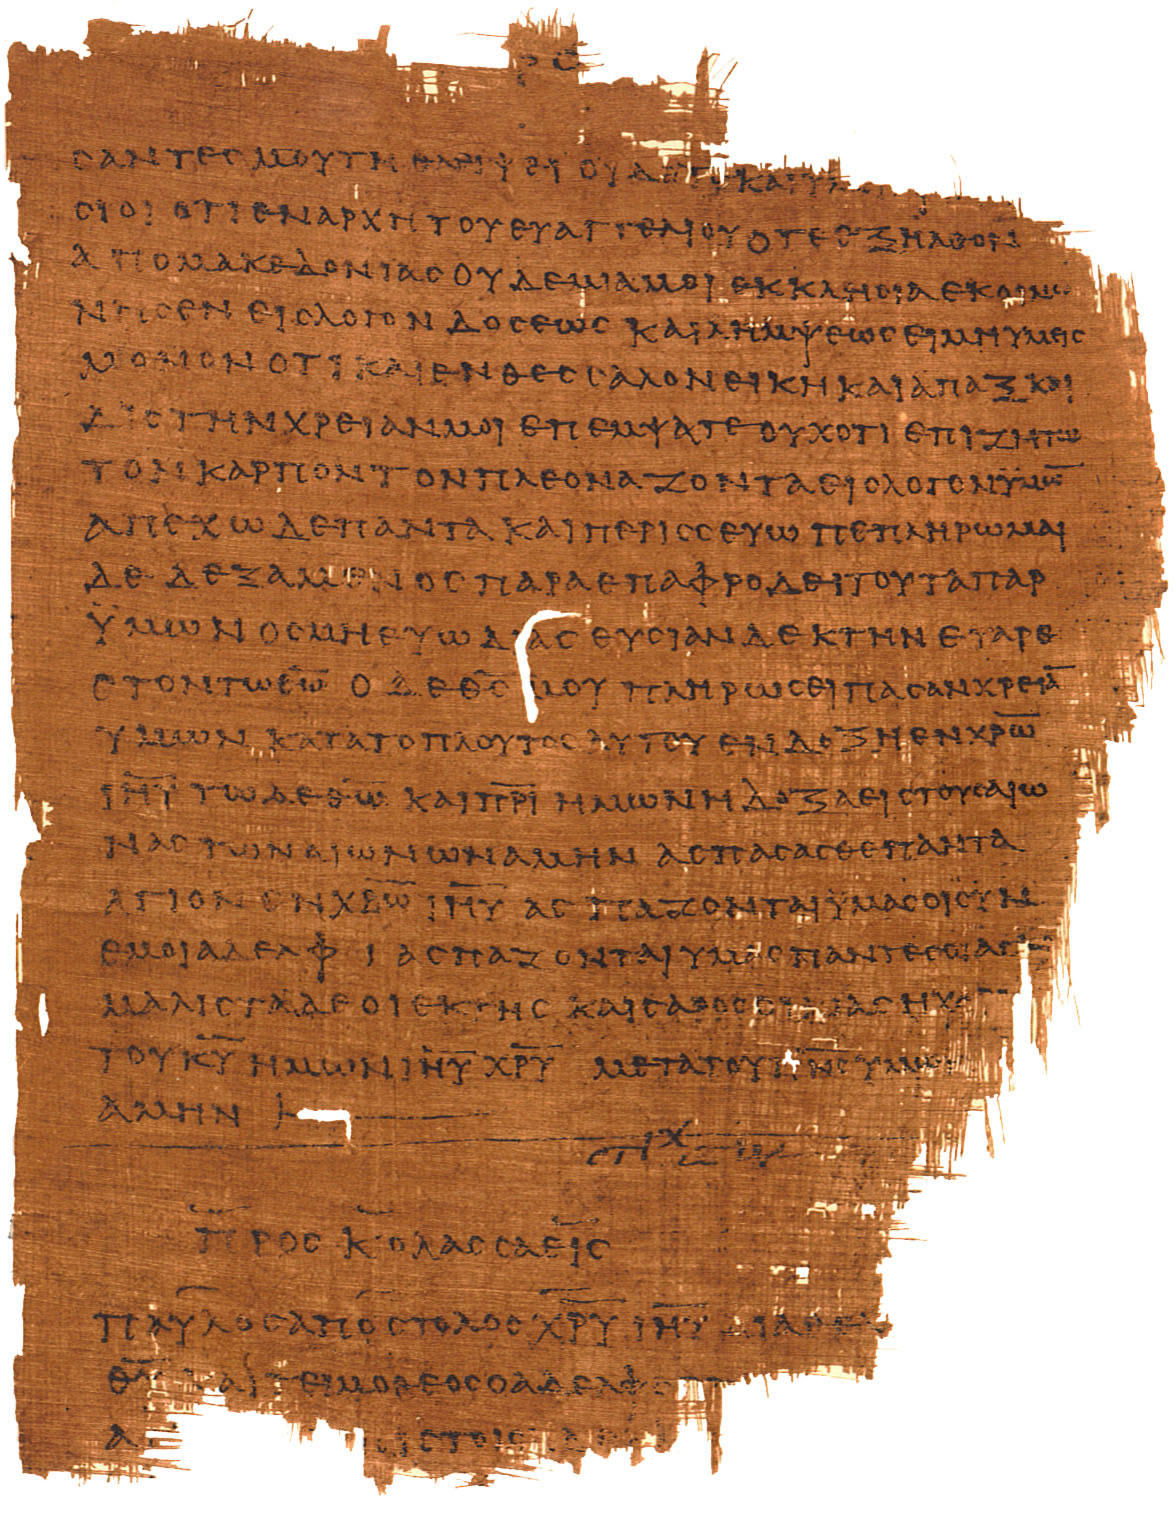 σαντες μου τη θλιψει οιδατε και υμ
σιοι οτι εν αρχη του ευαγγελιου οτε εξηλθον
απο μακεδονιας ουδεμια μοι εκκλησια εκοινω
νησεν εις λογον δοσεως και λημψεως ει μη υμεις
μονοι οτι και εν θεσσαλονεικη και απαξ και
δις την χρειαν μοι επεμψατε ουχ οτι επιζητω
τον καρπον τον πλεοναζοντα εις λογον ϋμω̅
απεχω δε παντα και περισσευω πεπληρωμαι
δε δεξαμενος παρα επαφροδειτου τα παρ
ϋμων οσμη ευωδιας θυσιαν δεκτην ευαρε
στον τω θ̅ω̅ ο δε θ̅ς̅ μου πληρωσει πασαν χρεια̅
υμων κατα το πλουτος αυτου εν δοξη εν χ̅ρ̅ω̅
ι̅η̅υ̅ τω δε θ̅ω̅ και π̅ρ̅ι̅ ημων η δοξα εις τους αιω
νας των αιωνων αμην ασπασασθε παντα
αγιον εν χ̅ρ̅ω̅ ι̅η̅υ̅ ασπαζονται υμας οι συν
εμοι αδελφ ι ασπαζονται υμας παντες οι αγι
μαλιστα δε οι εκ της καισαρος οικιας η χα
του κ̅υ̅ ημων ι̅η̅υ̅ χ̅ρ̅υ̅ μετα του π̅ν̅ς̅ υμων
αμην
στιχ
προς κολασσαεις
παυλος αποστολος χ̅ρ̅υ̅ ι̅η̅υ̅ δια θελ
θ̅υ̅ και τειμοθεος ο αδελφος
α ιστοις